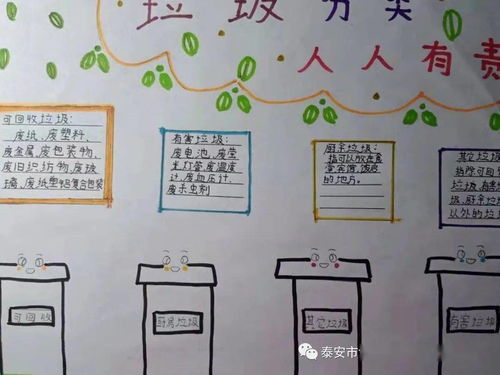 垃圾分类
人人有责
可回收垃圾:
废纸,废塑料,
废金属,废包装物,
废旧织纺物,废玻
璃,废纸塑铝复合包装
有害垃圾:
废电池,废荧
光灯管,废温度
计,废血压计,
废杀虫剂
厨余垃圾:
指可以放在食
堂宾馆,饭店
的地方。
其它垃圾
指除可回
垃圾,有害
圾,厨余垃
以外的垃
可回收
厨房垃圾
其它垃圾
有害垃圾
泰安市